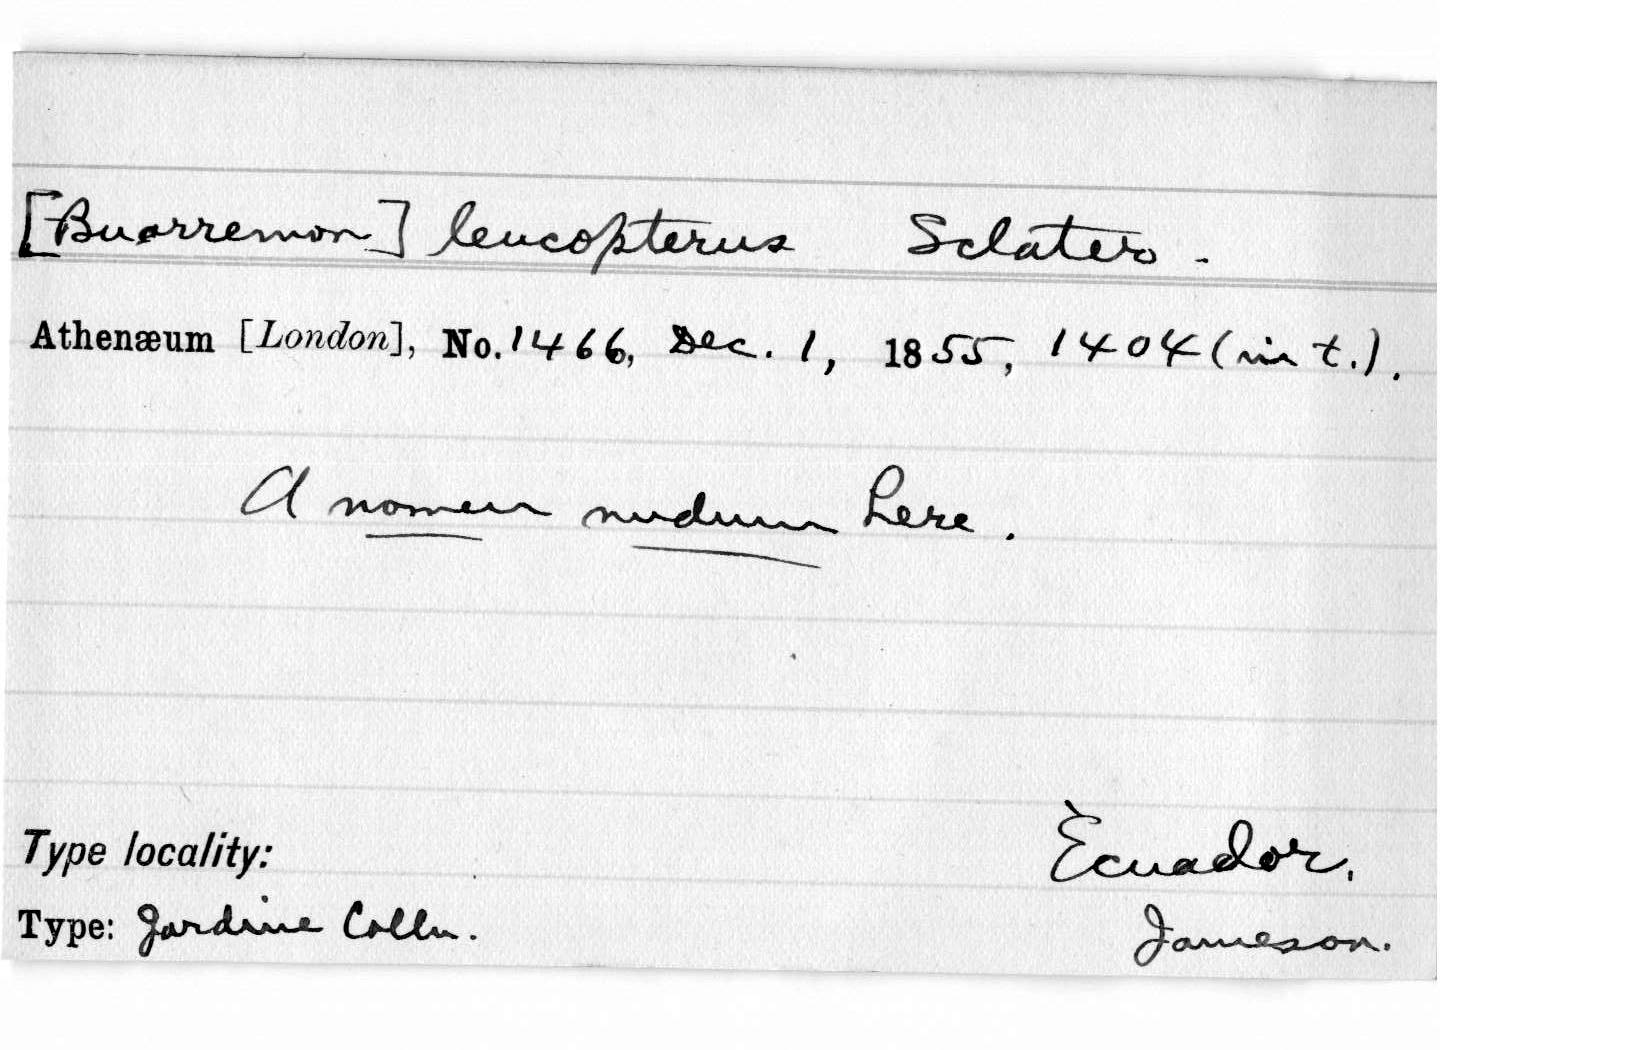 [Buarremon] leucopterus Sclater.
Athenæum [London], No. 1466, Dec. 1, 1855, 1404 (in t.).
A nomen nudum here.
Type locality: Ecuador,
Type: Jardine Colln. Jameson.